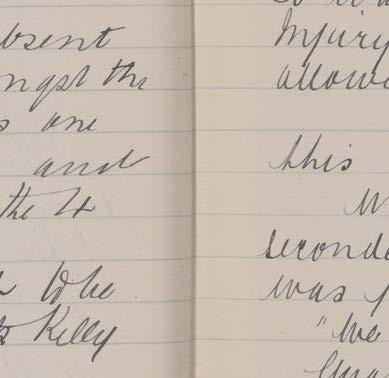 absent
ngst the
s one
and
the 4
Kelly
Injury
allow
this
seconde
was
"We